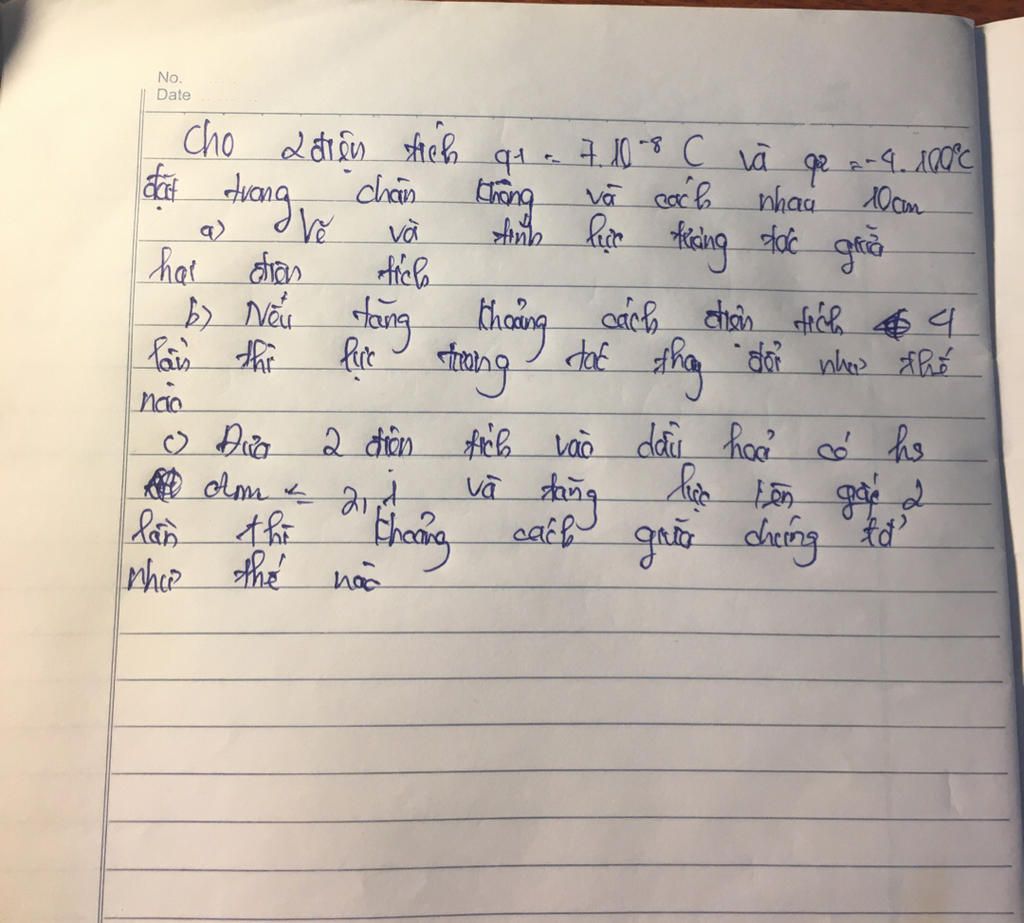 No.
Date
Cho 2 điện tích q1 = 7.10⁻⁸ C và q2 = -4.
đặt trong chân không và cách nhau 10cm
a) Vẽ và tính lực tương tác giữa
hai điện tích
b) Nếu tăng khoảng cách điện tích 4
lần thì lực tương tác thay đổi như thế
nào
c) Đưa 2 điện tích vào dầu hoả có hs
đm = 2,1 và tăng lực lên gấp 2
lần thì khoảng cách giữa chúng tđ
như thế nào